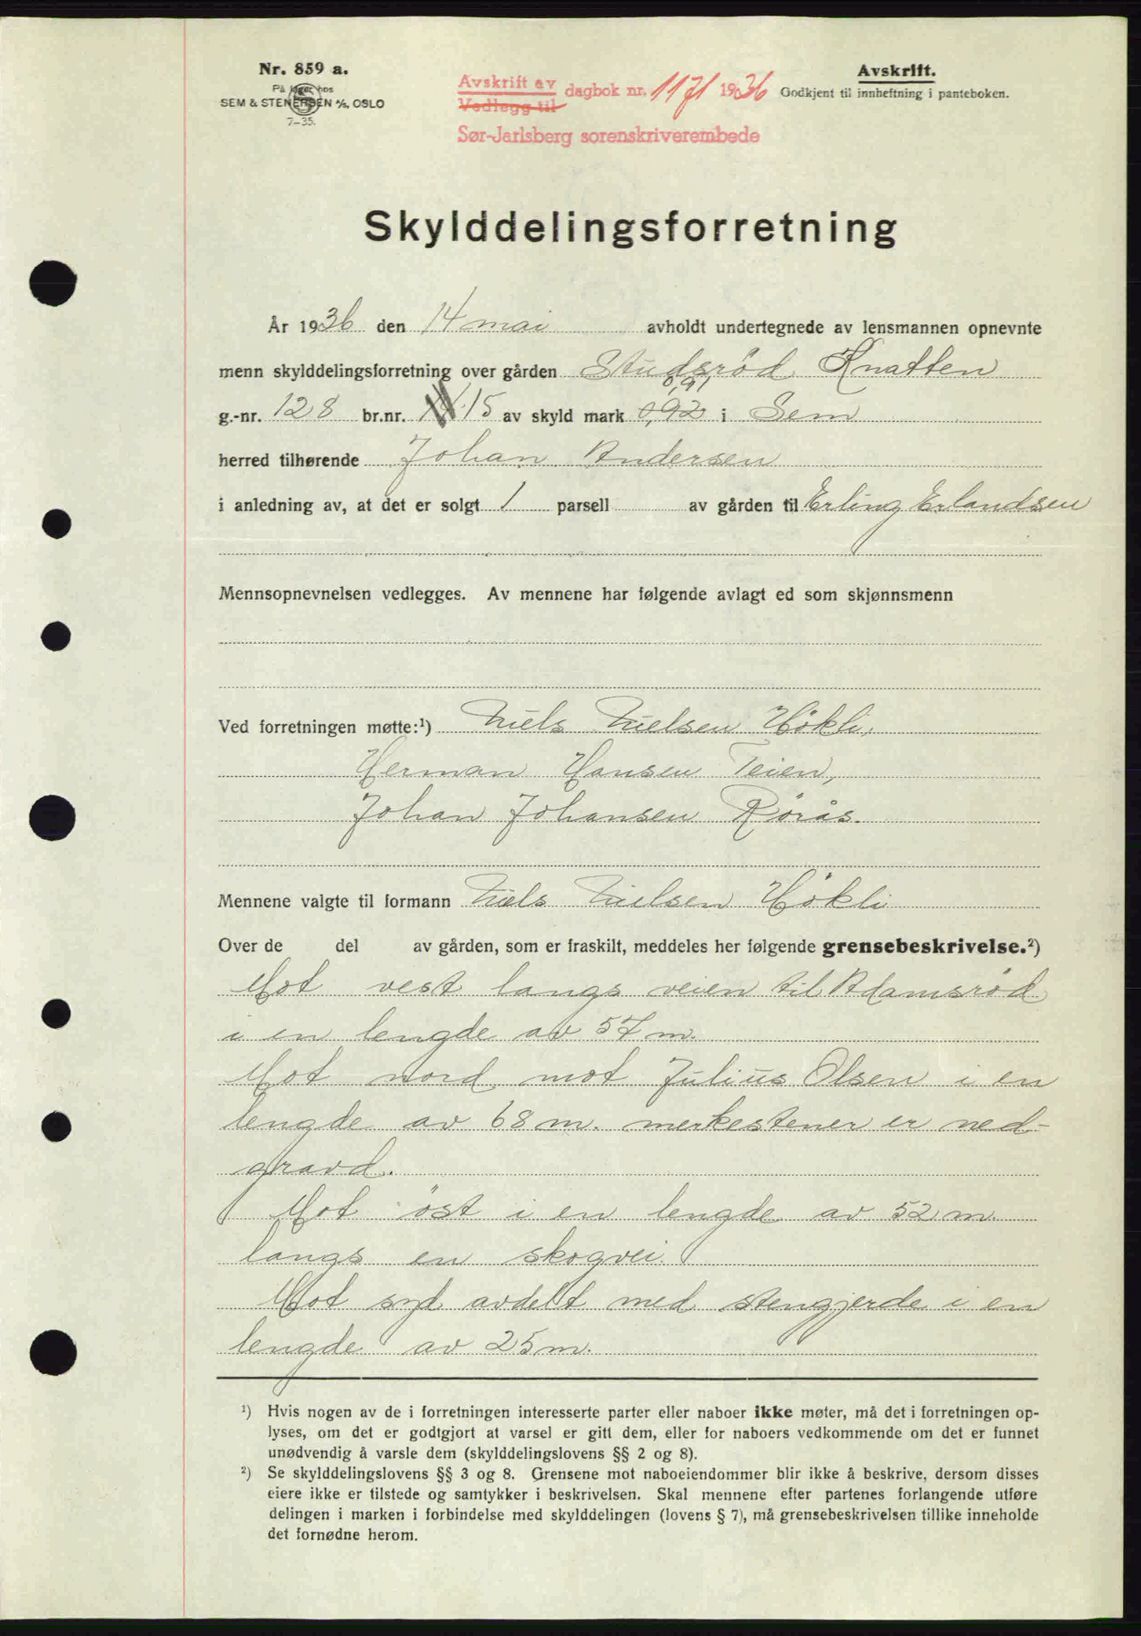 Nr. 859 a.
På lager hos
SEM & STENERSEN A/S, OSLO
7-35.
Avskrift av
Vedlegg til
dagbok nr. 1171 1936
Sør-Jarlsberg sorenskriverembede
Avskrift.
Godkjent til innheftning i panteboken.
Skylddelingsforretning
År 1936 den 14 mai avholdt undertegnede av lensmannen opnevnte
menn skylddelingsforretning over gården Studsrød Knatten
0,91
g.-nr. 128 br.nr. 15 av skyld mark 0,92 i Sem
herred tilhørende Johan Andersen
i anledning av, at det er solgt 1 parsell av gården til Erling Erlandsen
Mennsopnevnelsen vedlegges. Av mennene har følgende avlagt ed som skjønnsmenn
Ved forretningen møtte:¹) Niels Nielsen Hökli,
Herman Hansen Teien,
Johan Johansen Rörås.
Mennene valgte til formann Niels Nielsen Hökli
Over de del av gården, som er fraskilt, meddeles her følgende grensebeskrivelse.²)
Mot vest langs veien til Adamsröd
i en lengde av 57 m.
Mot nord mot Julius Olsen i en
lengde av 68 m. merkestener er ned-
gravd.
Mot öst i en lengde av 52 m.
langs en skogvei.
Mot syd avdelt med stengjerde i en
lengde av 25 m.
¹) Hvis nogen av de i forretningen interesserte parter eller naboer ikke møter, må det i forretningen op-
lyses, om det er godtgjort at varsel er gitt dem, eller for naboers vedkommende om det er funnet
unødvendig å varsle dem (skylddelingslovens §§ 2 og 8).
²) Se skylddelingslovens §§ 3 og 8. Grensene mot naboeiendommer blir ikke å beskrive, dersom disses
eiere ikke er tilstede og samtykker i beskrivelsen. Skal mennene efter partenes forlangende utføre
delingen i marken i forbindelse med skylddelingen (lovens § 7), må grensebeskrivelsen tillike inneholde
det fornødne herom.